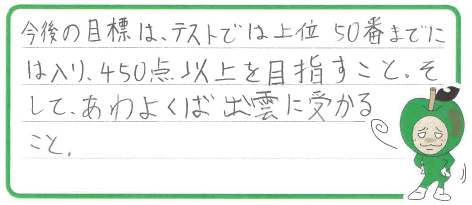 今後の目標は、テストでは上位 50番までに
は入り、450点以上を目指すこと。そ
して、あわよくば出雲に受かる
こと。